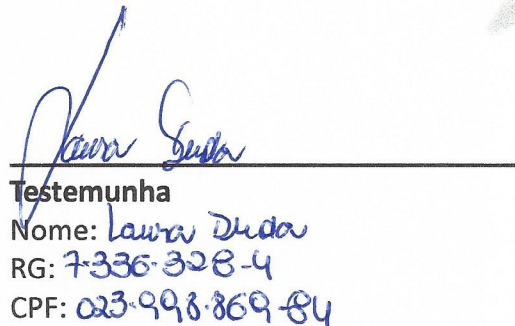 Laura Duda
Testemunha
Nome: Laura Duda
RG: 7.336.328-4
CPF: 023.998.869-84